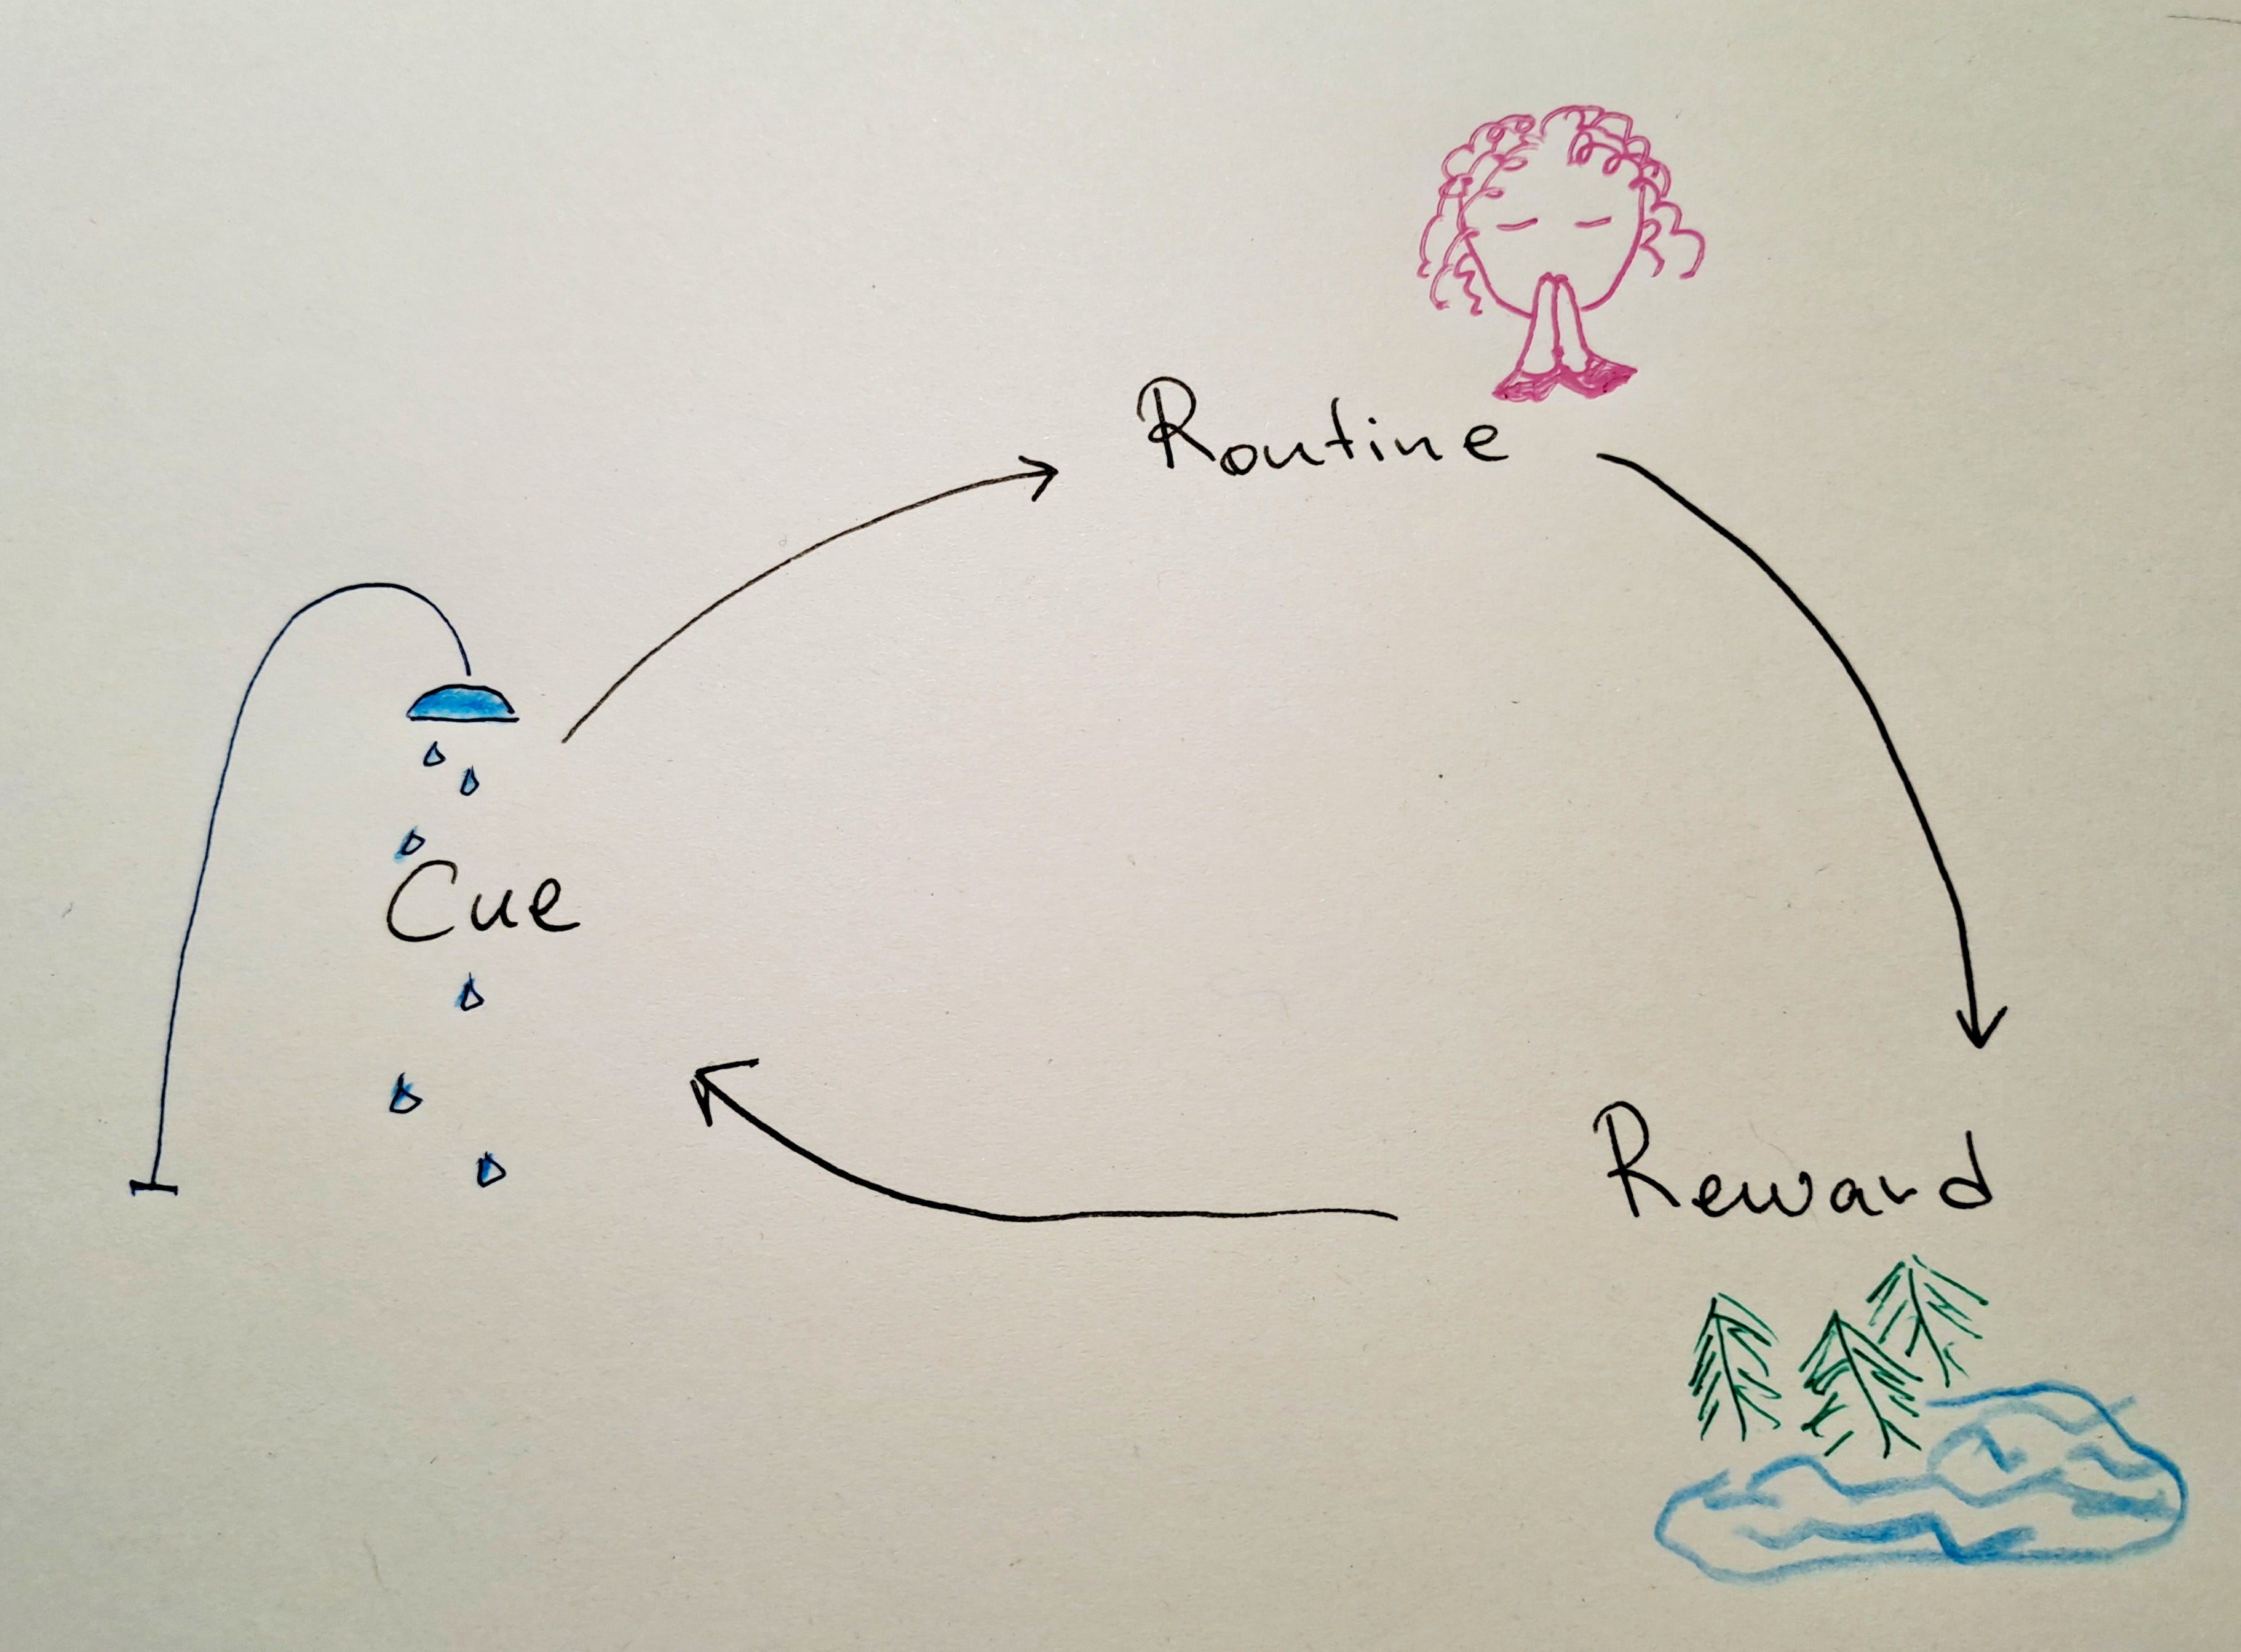 Routine
Cue
Reward